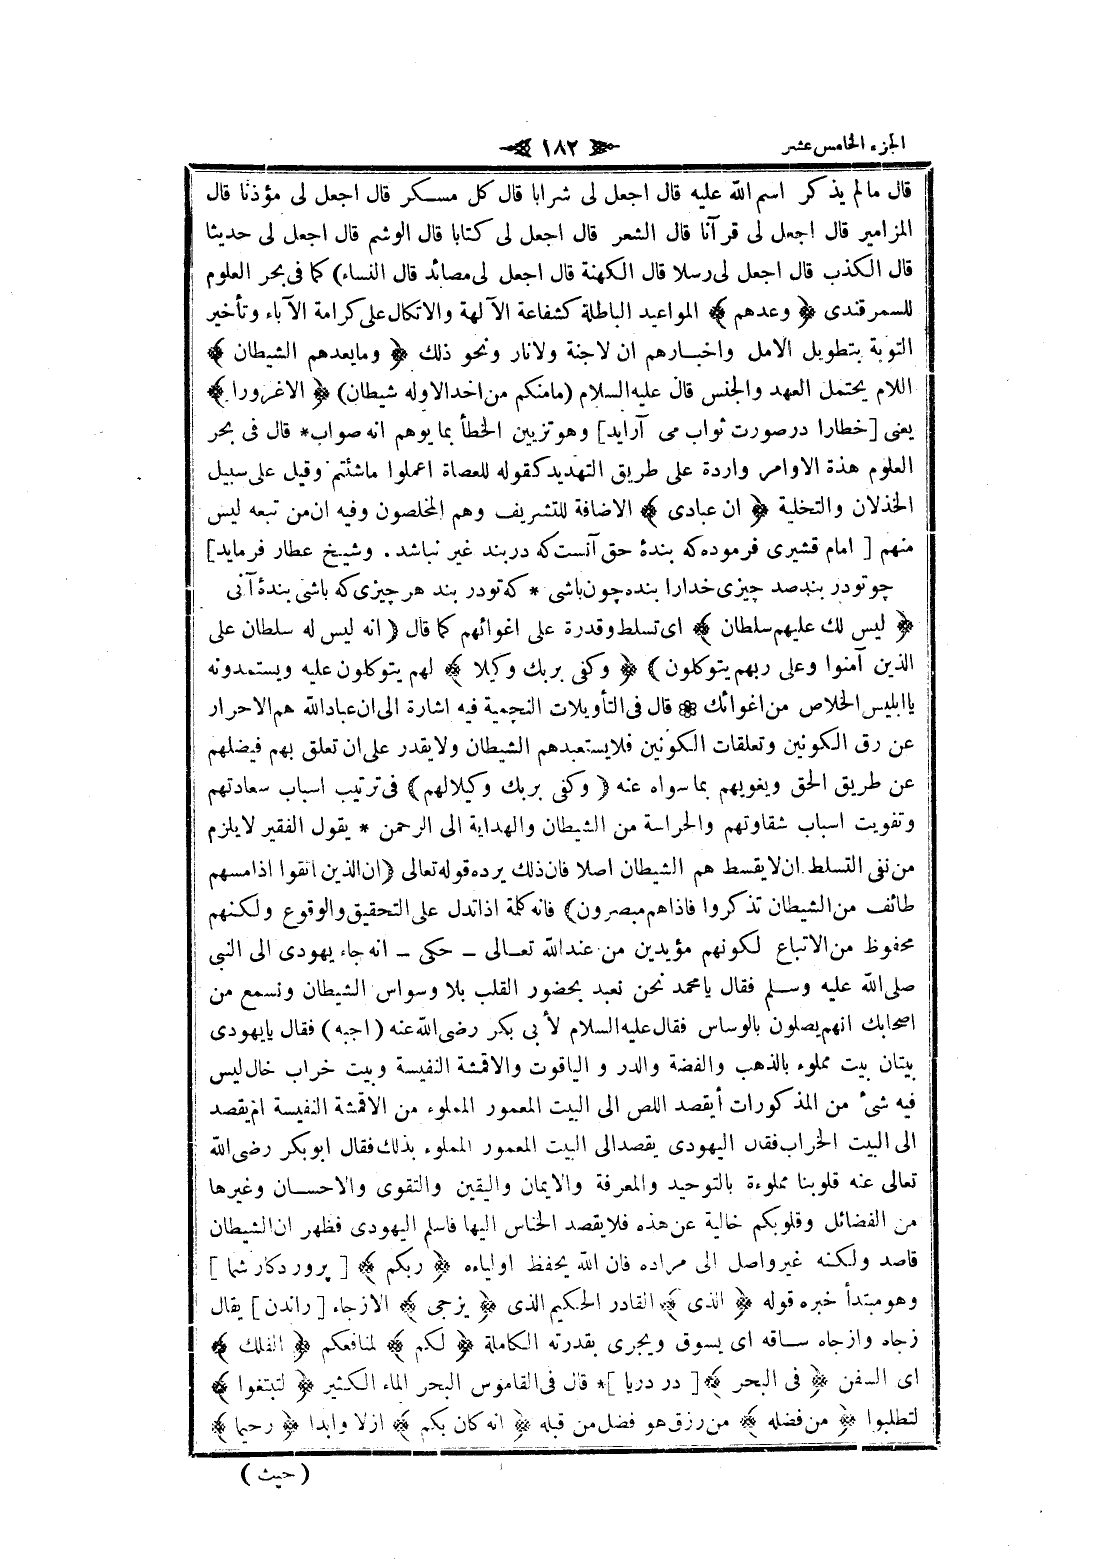 الجزء الخامس عشر
﴿ ١٨٢ ﴾
قال مالم يذكر اسم الله عليه قال اجعل لى شرابا قال كل مسكر قال اجعل لى مؤذنا قال
المزامير قال اجعل لى قرآنا قال الشعر قال اجعل لى كتابا قال الوشم قال اجعل لى حديثا
قال الكذب قال اجعل لى رسلا قال الكهنة قال اجعل لى مصائد قال النساء) كما فى بحر العلوم
للسمرقندى ﴿ وعدهم ﴾ المواعيد الباطلة كشفاعة الآلهة والاتكال على كرامة الآباء وتأخير
التوبة بتطويل الامل واخبارهم ان لاجنة ولانار ونحو ذلك ﴿ ومايعدهم الشيطان ﴾
اللام يحتمل العهد والجنس قال عليه السلام (مامنكم من احد الاوله شيطان) ﴿ الاغرورا ﴾
يعنى [خطارا درصورت ثواب مى آرايد] وهو تزيين الخطأ بما يوهم انه صواب* قال فى بحر
العلوم هذة الاوامر واردة على طريق التهديد كقوله للعصاة اعملوا ماشئتم وقيل على سبيل
الخذلان والتخلية ﴿ ان عبادى ﴾ الاضافة للتشريف وهم المخلصون وفيه ان من تبعه ليس
منهم [ امام قشيرى فرموده كه بندۀ حق آنست كه دربند غير نباشد . وشيخ عطار فرمايد]
چو تودر بند صد چيزى خدارا بنده چون باشى * كه تودر بند هر چيزى كه باشى بندۀ آنى
﴿ ليس لك عليهم سلطان ﴾ اى تسلط وقدرة على اغوائهم كما قال ( انه ليس له سلطان على
الذين آمنوا وعلى ربهم يتوكلون) ﴿ وكفى بربك وكيلا ﴾ لهم يتوكلون عليه ويستمدونه
يا ابليس الخلاص من اغوائك ❁ قال فى التأويلات النجمية فيه اشارة الى ان عبادالله هم الاحرار
عن رق الكونين وتعلقات الكونين فلا يستعبدهم الشيطان ولايقدر على ان تعلق بهم فيضلهم
عن طريق الحق ويغويهم بما سواه عنه ( وكفى بربك وكيلالهم) فى ترتيب اسباب سعادتهم
وتفويت اسباب شقاوتهم والحراسة من الشيطان والهداية الى الرحمن * يقول الفقير لايلزم
من نفى التسلط ان لا يقسط هم الشيطان اصلا فان ذلك يرده قوله تعالى (ان الذين اتقوا اذا مسهم
طائف من الشيطان تذكروا فاذاهم مبصرون) فانه كلمة اذاتدل على التحقيق والوقوع ولكنهم
محفوظ من الاتباع لكونهم مؤيدين من عندالله تعالى ـ حكى ـ انه جاء يهودى الى النبى
صلى الله عليه وسلم فقال يامحمد نحن نعبد بحضور القلب بلا وسواس الشيطان ونسمع من
اصحابك انهم يصلون بالوساس فقال عليه السلام لأبى بكر رضى الله عنه ( اجبه ) فقال يايهودى
بيتان بيت مملوء بالذهب والفضة والدر و الياقوت والاقمشة النفيسة وبيت خراب خال ليس
فيه شئ من المذكورات أيقصد اللص الى البيت المعمور المملوء من الاقمشة النفيسة ام يقصد
الى البيت الخراب فقال اليهودى يقصد الى البيت المعمور المملوء بذلك فقال ابوبكر رضى الله
تعالى عنه قلوبنا مملوءة بالتوحيد والمعرفة والايمان واليقين والتقوى والاحسان وغيرها
من الفضائل وقلوبكم خالية عن هذه فلايقصد الخناس اليها فاسلم اليهودى فظهر ان الشيطان
قاصد ولكنه غير واصل الى مراده فان الله يحفظ اولياءه ﴿ ربكم ﴾ [ پروردكار شما ]
وهو مبتدأ خبره قوله ﴿ الذى ﴾ القادر الحكيم الذى ﴿ يزجى ﴾ الازجاء [ راندن ] يقال
زجاه وازجاه ساقه اى يسوق ويجرى بقدرته الكاملة ﴿ لكم ﴾ لمنافعكم ﴿ الفلك ﴾
اى السفن ﴿ فى البحر ﴾ [ در دريا ] * قال فى القاموس البحر الماء الكثير ﴿ لتبتغوا ﴾
لتطلبوا ﴿ من فضله ﴾ من رزق هو فضل من قبله ﴿ انه كان بكم ﴾ ازلا وابدا ﴿ رحيما ﴾
( حيث )